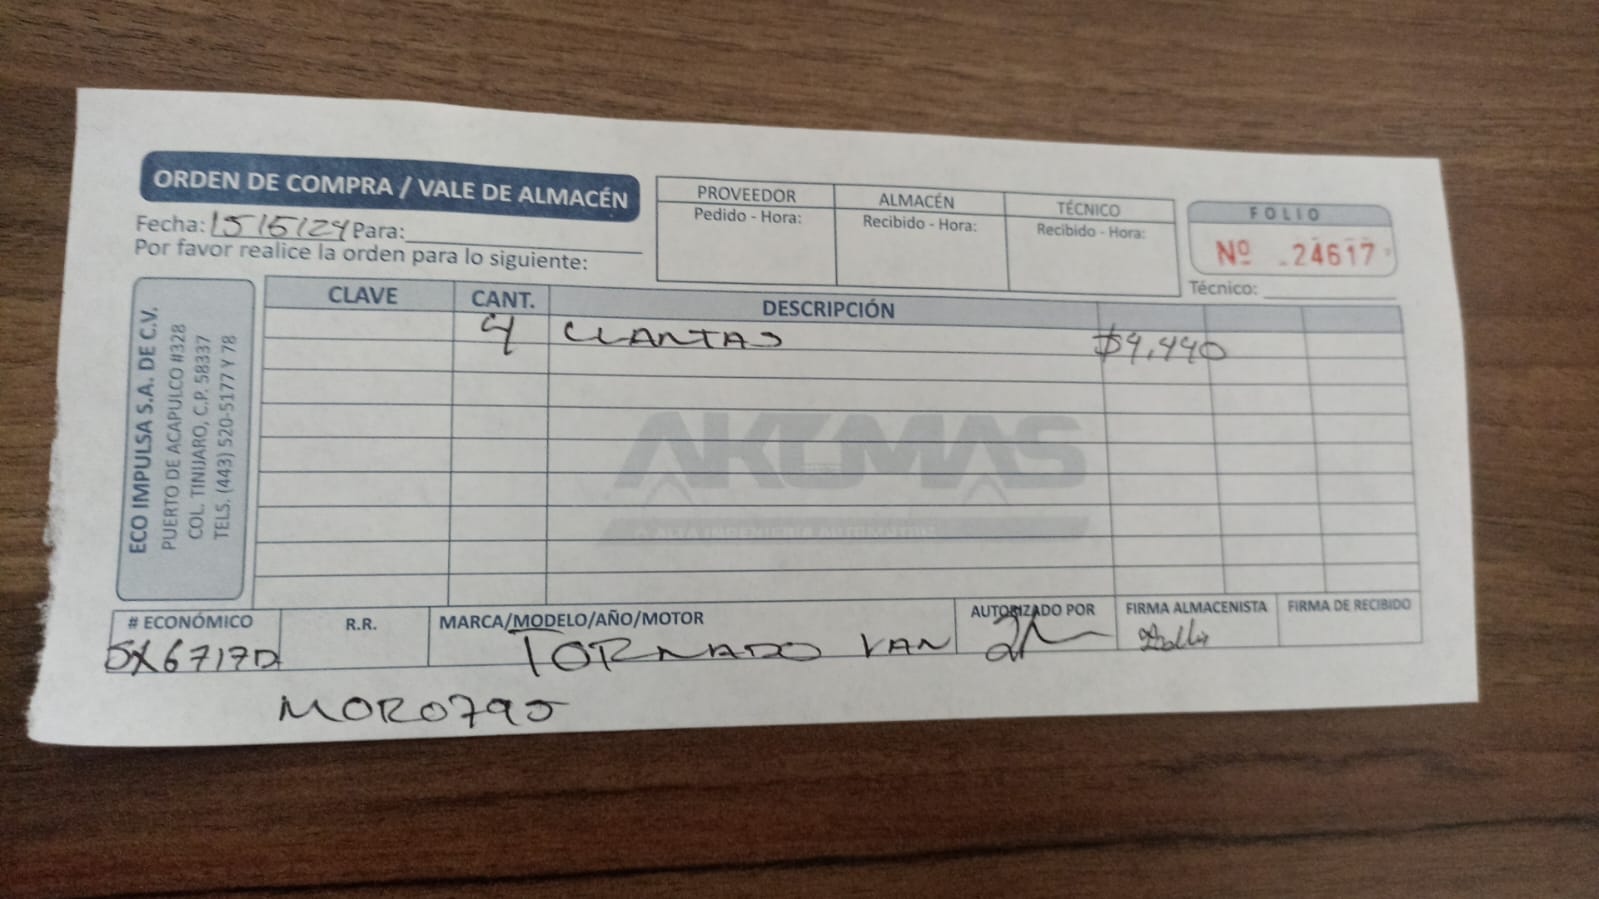 ORDEN DE COMPRA / VALE DE ALMACÉN
Fecha: 15/5/24 Para:
Por favor realice la orden para lo siguiente:
PROVEEDOR
Pedido - Hora:
ALMACÉN
Recibido - Hora:
TÉCNICO
Recibido - Hora:
FOLIO
Nº 24617
Técnico:
ECO IMPULSA S.A. DE C.V.
PUERTO DE ACAPULCO #328
COL. TINIJARO, C.P. 58337
TELS. (443) 520-5177 Y 78
CLAVE CANT. DESCRIPCIÓN
4 LLANTAS $4,440
AKUMAS
ALTA INGENIERÍA AUTOMOTRIZ
# ECONÓMICO
SX6717D
R.R.
MARCA/MODELO/AÑO/MOTOR
TORNADO VAN
AUTORIZADO POR
FIRMA ALMACENISTA
FIRMA DE RECIBIDO
MOR0795